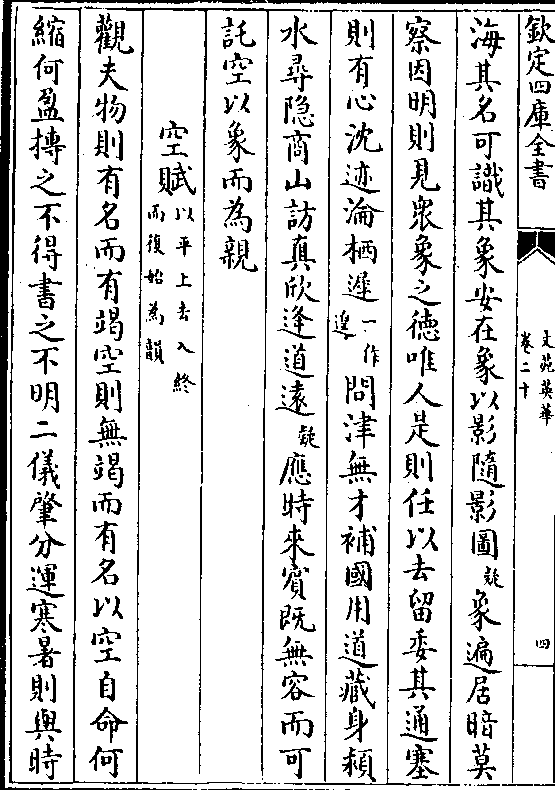 欽定四庫全書
文苑英華
卷二十
四
海其名可識其象安在象以影隨影圖疑象遍居暗莫
察因明則見衆象之德唯人是則任以去留委其通塞
則有心沈迹淪栖遲一作遑問津無才補國用道藏身潁
水尋隐商山訪真欣逢道遠疑應時來賓既無容而可
託空以象而為親
空賦以平上去入終而復始為韻
觀夫物則有名而有竭空則無竭而有名以空自命何
縮何盈摶之不得書之不明二儀肇分運寒暑則與時